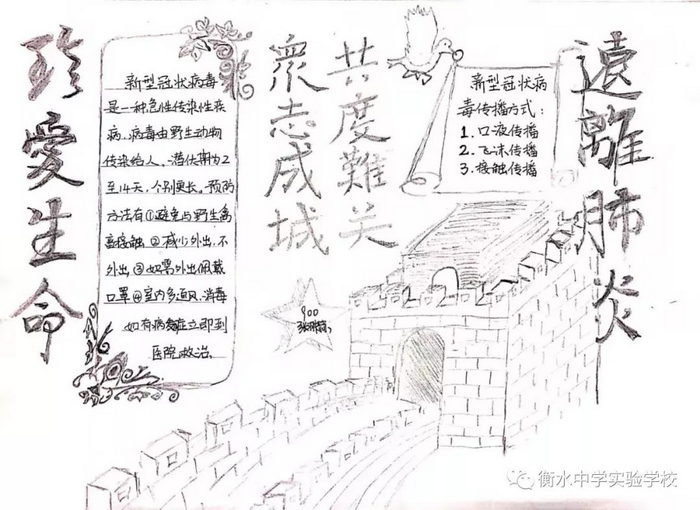 珍愛生命
新型冠状病毒
是一种急性传染性疾
病,病毒由野生动物
传染给人,潜伏期为2
至14天,个别更长,预防
方法有①避免与野生禽
畜接触②减少外出,不
外出③如需外出佩戴
口罩④室内多通风,消毒
如有病症立即到
医院救治。
衆志成城
共度難关
新型冠状病
毒传播方式:
1.口液传播
2.飞沫传播
3.接触传播
遠離肺炎
900
衡水中学实验学校